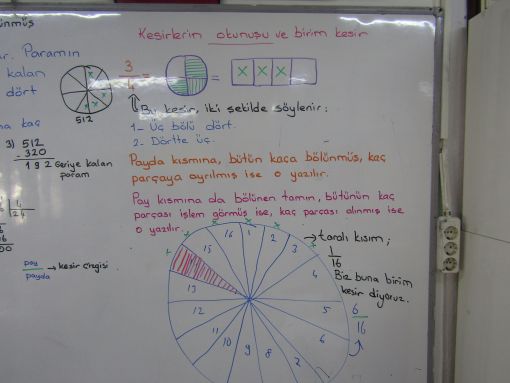 Kesirlerin okunuşu ve birim kesir
ünmüş
ar. Paramın
kalan
dört
na kaç
512
3) 512
- 320
192 Geriye kalan
param
4
24
16
00
pay
payda → kesir çizgisi
3
4 = =
x x x
Bu kesir, iki şekilde söylenir;
1- Üç bölü dört.
2- Dörtte üç.
Payda kısmına, bütün kaça bölünmüş, kaç
parçaya ayrılmış ise o yazılır.
Pay kısmına da bölünen tamın, bütünün kaç
parçası işlem görmüş ise, kaç parçası alınmış ise
o yazılır.
→ taralı kısım;
1
16
Biz buna birim
kesir diyoruz.
6
16
1
2
3
4
5
6
7
8
9
10
11
12
13
15
16